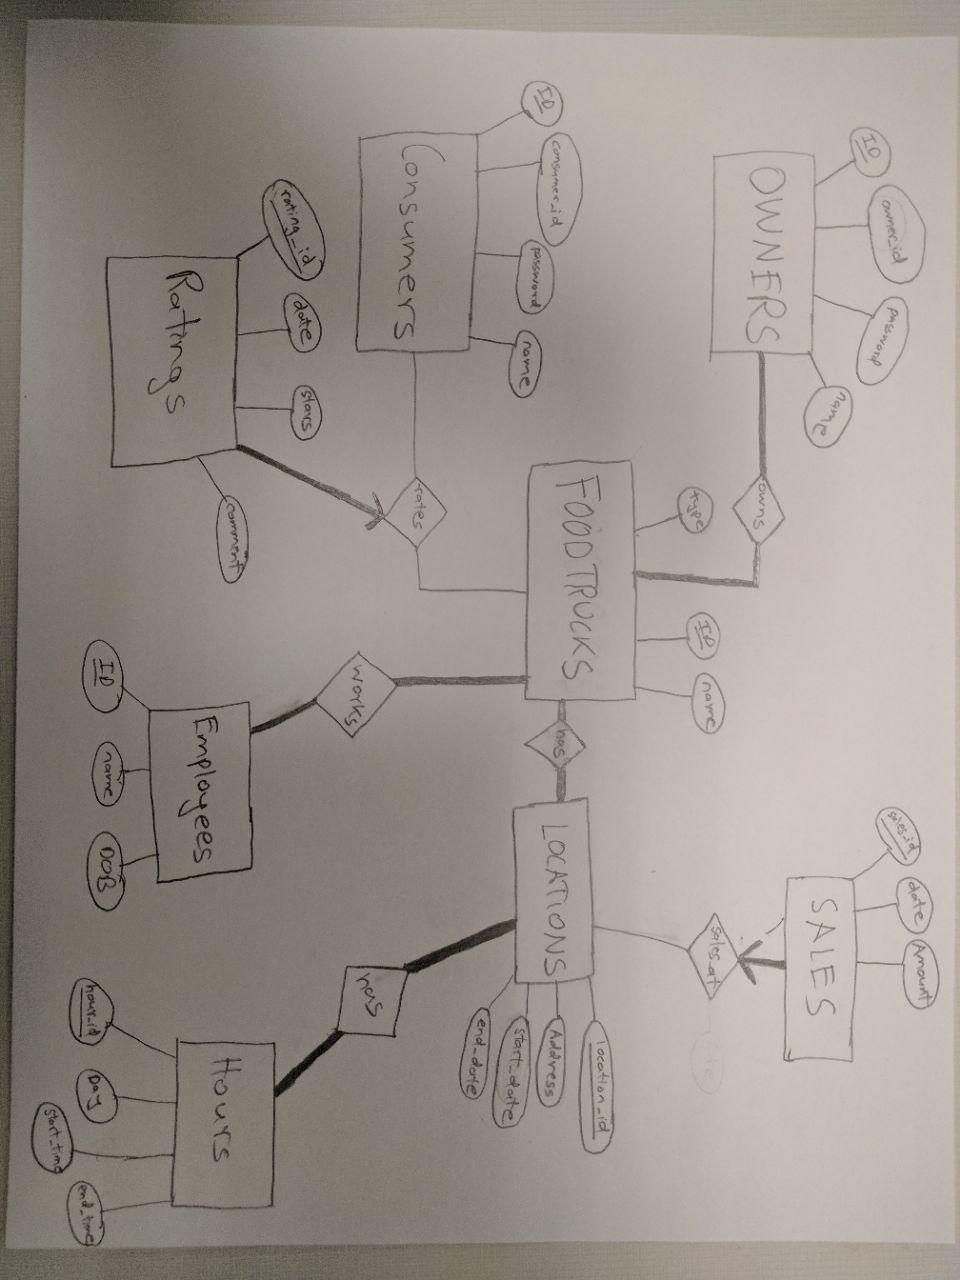 ID
owner_id
password
name
OWNERS
owns
sales_id
date
Amount
SALES
sales_at
type
ID
name
FOODTRUCKS
has
LOCATIONS
location_id
Address
start_date
end_date
ID
consumer_id
password
name
Consumers
rates
works
has
rating_id
date
stars
comment
Ratings
Employees
ID
name
DOB
Hours
hour_id
Day
start_time
end_time